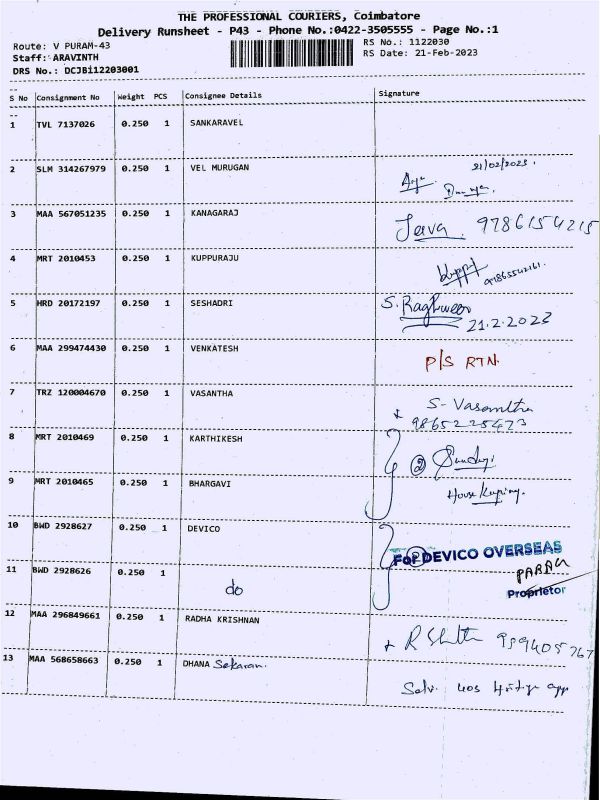 THE PROFESSIONAL COURIERS, Coimbatore
Delivery Runsheet - P43 - Phone No.:0422-3505555 - Page No.:1
Route: V PURAM-43 RS No.: 1122030
Staff: ARAVINTH RS Date: 21-Feb-2023
DRS No.: DCJBi12203001
S No Consignment No Weight PCS Consignee Details Signature
1 TVL 7137026 0.250 1 SANKARAVEL
21/02/2023.
2 SLM 314267979 0.250 1 VEL MURUGAN
3 MAA 567051235 0.250 1 KANAGARAJ
Jeeva 9786154215
4 MRT 2010453 0.250 1 KUPPURAJU
5 HRD 20172197 0.250 1 SESHADRI
S. Raghuveer
21.2.2023
6 MAA 299474430 0.250 1 VENKATESH
P/S RTN.
7 TRZ 120004670 0.250 1 VASANTHA
S- Vasantha
9865225473
8 MRT 2010469 0.250 1 KARTHIKESH
②
9 MRT 2010465 0.250 1 BHARGAVI
House Keeping.
10 BWD 2928627 0.250 1 DEVICO
For DEVICO OVERSEAS
11 BWD 2928626 0.250 1
do
Proprietor
12 MAA 296849661 0.250 1 RADHA KRISHNAN
13 MAA 568658663 0.250 1 DHANA Sekaran.